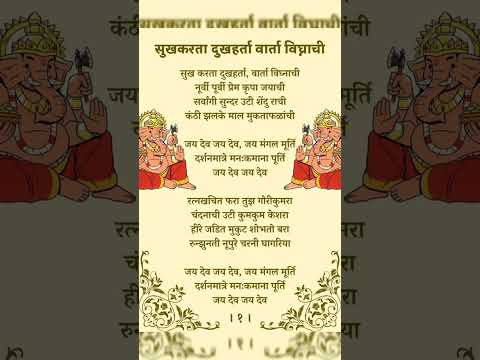 सुखकरता दुखहर्ता वार्ता विघ्नाची
सुख करता दुखहर्ता, वार्ता विघ्नाची
नूर्वी पूर्वी प्रेम कृपा जयाची
सर्वांगी सुन्दर उटी शेंदु राची
कंठी झलके माल मुकताफळांची
जय देव जय देव, जय मंगल मूर्ति
दर्शनमात्रे मनःकमाना पूर्ति
जय देव जय देव
रत्नखचित फरा तुझ गौरीकुमरा
चंदनाची उटी कुमकुम केशरा
हीरे जडित मुकुट शोभतो बरा
रुन्झुनती नूपुरे चरनी घागरिया
जय देव जय देव, जय मंगल मूर्ति
दर्शनमात्रे मनःकमाना पूर्ति
जय देव जय देव
।१।